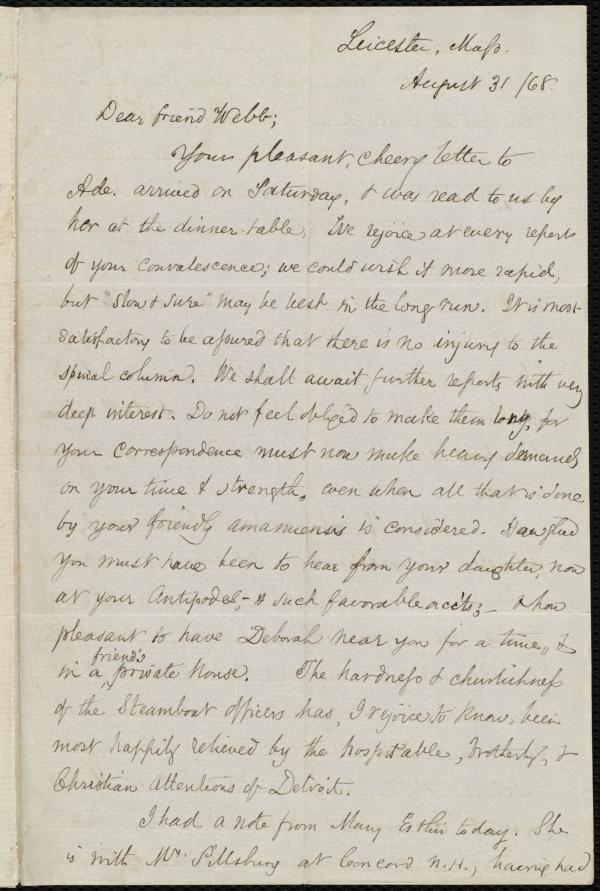 Leicester, Mass.
August 31 /68.
Dear friend Webb;
Your pleasant, cheery letter to
Ade. arrived on Saturday, & was read to us by
her at the dinner-table. We rejoice at every report
of your convalescence; we could wish it more rapid,
but "slow & sure" may be best in the long run. It is most
satisfactory to be assured that there is no injury to the
spinal column. We shall await further reports with very
deep interest. Do not feel obliged to make them long, for
your correspondence must now make heavy demands
on your time & strength, even when all that is done
by your friendly amanuensis is considered. How glad
you must have been to hear from your daughter, now
at your Antipodes,- & such favorable acc'ts;- & how
pleasant to have Deborah near you for a time, &
in a friend's private house. The hardness & churlishness
of the Steamboat officers has, I rejoice to know, been
most happily relieved by the hospitable, brotherly, &
Christian attentions of Detroit.
I had a note from Mary Estlin today. She
is with Mrs. Pillsbury at Concord N.H., having had